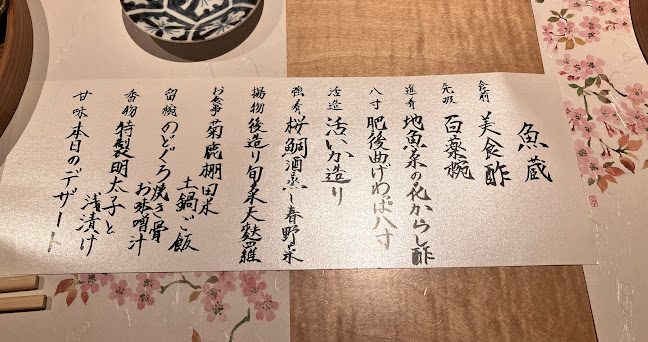 魚蔵
食前 美食酢
先吸 百薬椀
進肴 地魚菜の花からし酢
八寸 肥後曲げわっぱ八寸
活造 活いか造り
強肴 桜鯛酒蒸し春野菜
揚物 後造り旬菜天麩羅
お食事 菊鹿棚田米
土鍋ご飯
留椀 のどぐろ焼き骨
お味噌汁
香物 特製明太子と
浅漬け
甘味 本日のデザート